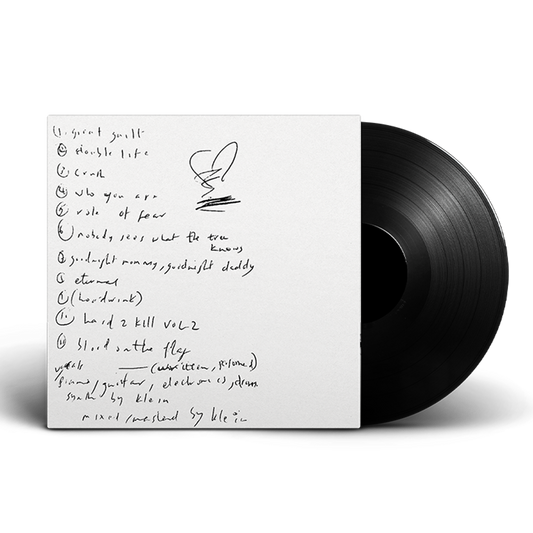 1. giant guilt
2 double life
3 crush
4 who you are
5 role of fear
6 nobody sees what the tree
knows
goodnight mommy, goodnight daddy
eternal
(hoodwink)
10. hard 2 kill vol-2
11 blood on the flag
vocals — (written, performed)
piano, guitar, electronics, drums
synth by klein
mixed/mastered by klein